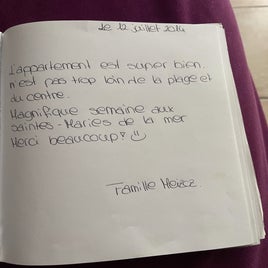 Le 12 juillet 2014
L'appartement est super bien.
n'est pas trop loin de la plage et
du centre.
Magnifique semaine aux
Saintes-Maries de la mer
Merci beaucoup!
Famille